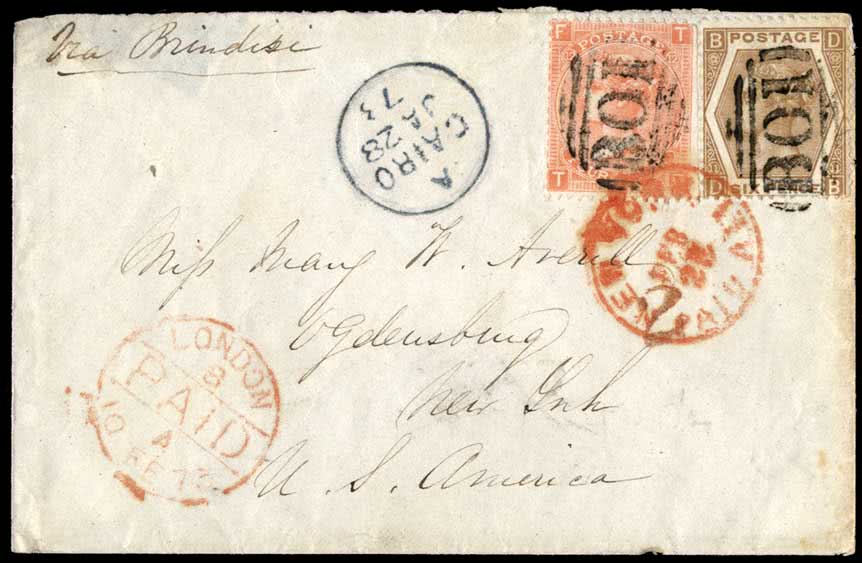 Via Brindisi
F T
POSTAGE
T
B POSTAGE D
D SIX PENCE B
B01
B01
A
CAIRO
JA 28
73
NEW YORK
PAID ALL
FEB
Miss Mary W. Averell
Ogdensburg
New York
U. S. America
LONDON
8
PAID
4
FE 73